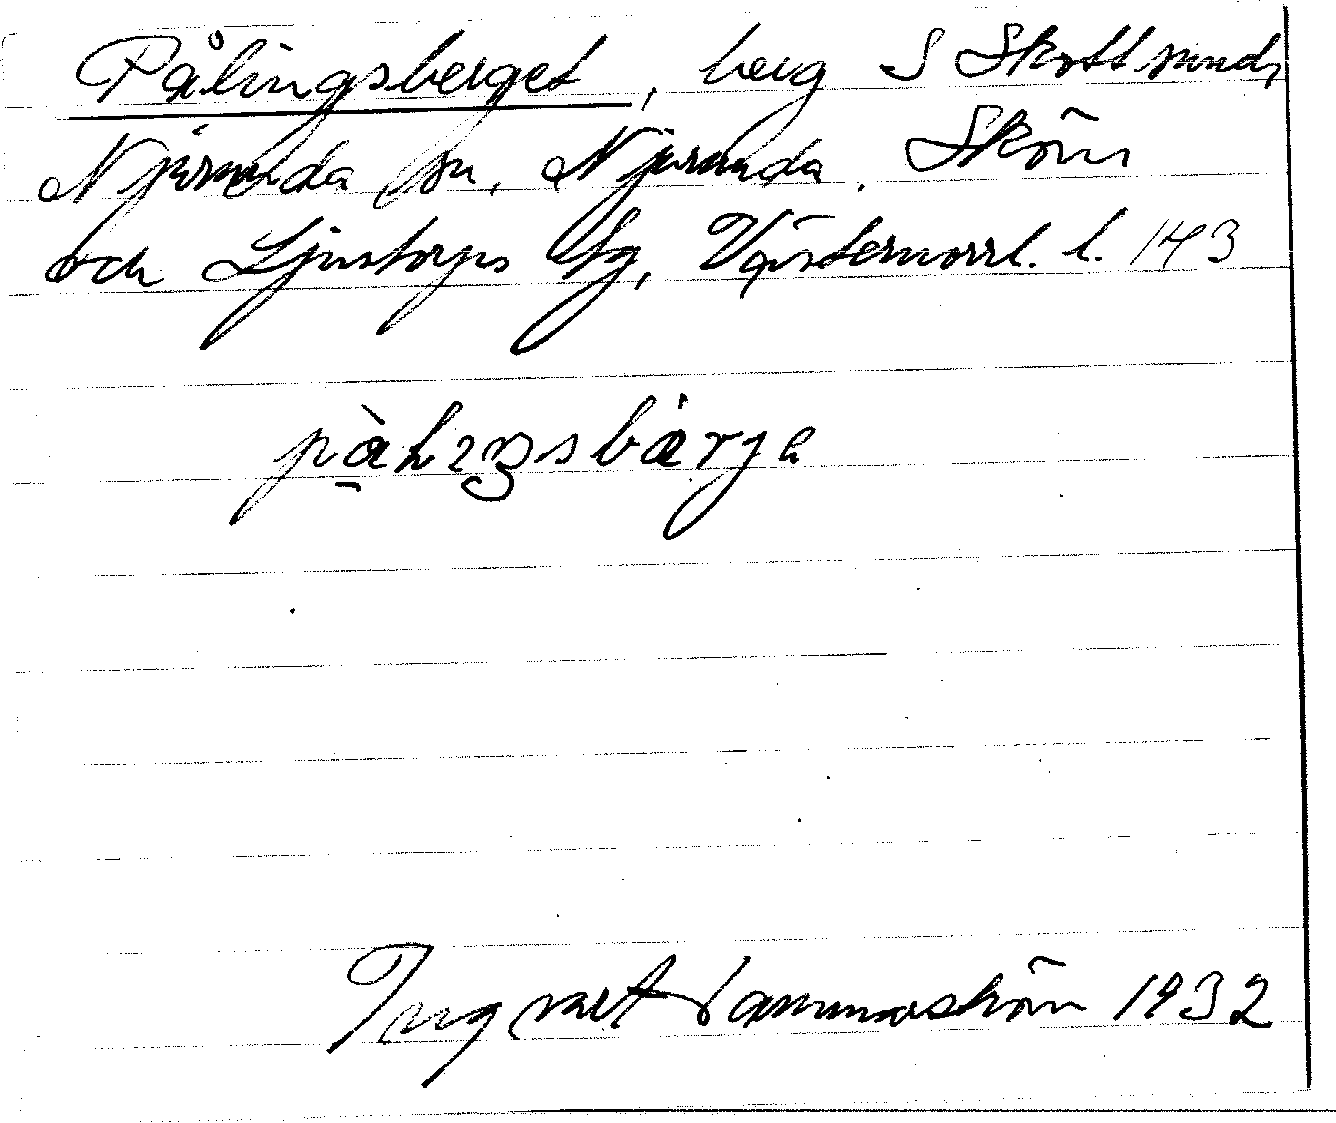 Pålingsberget, berg S Skottsund,
Njurunda sn, Njurunda, Sköns
och Ljustorps tg, Västernorrl. l. 143
Ingvart 1932